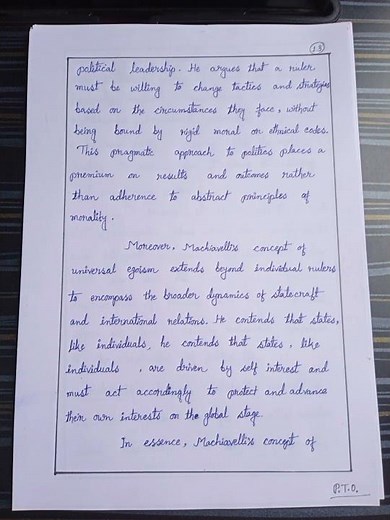 13
political leadership. He argues that a ruler
must be willing to change tactics and strategies
based on the circumstances they face, without
being bound by rigid moral or ethnical codes.
This pragmatic approach to politics places a
premium on results and outcomes rather
than adherence to abstract principles of
morality.
Moreover, Machiavelli's concept of
universal egoism extends beyond individual rulers
to encompass the broader dynamics of statecraft
and international relations. He contends that states,
like individuals, he contends that states, like
individuals , are driven by self interest and
must act accordingly to protect and advance
their own interests on the global stage.
In essence, Machiavelli's concept of
P.T.O.